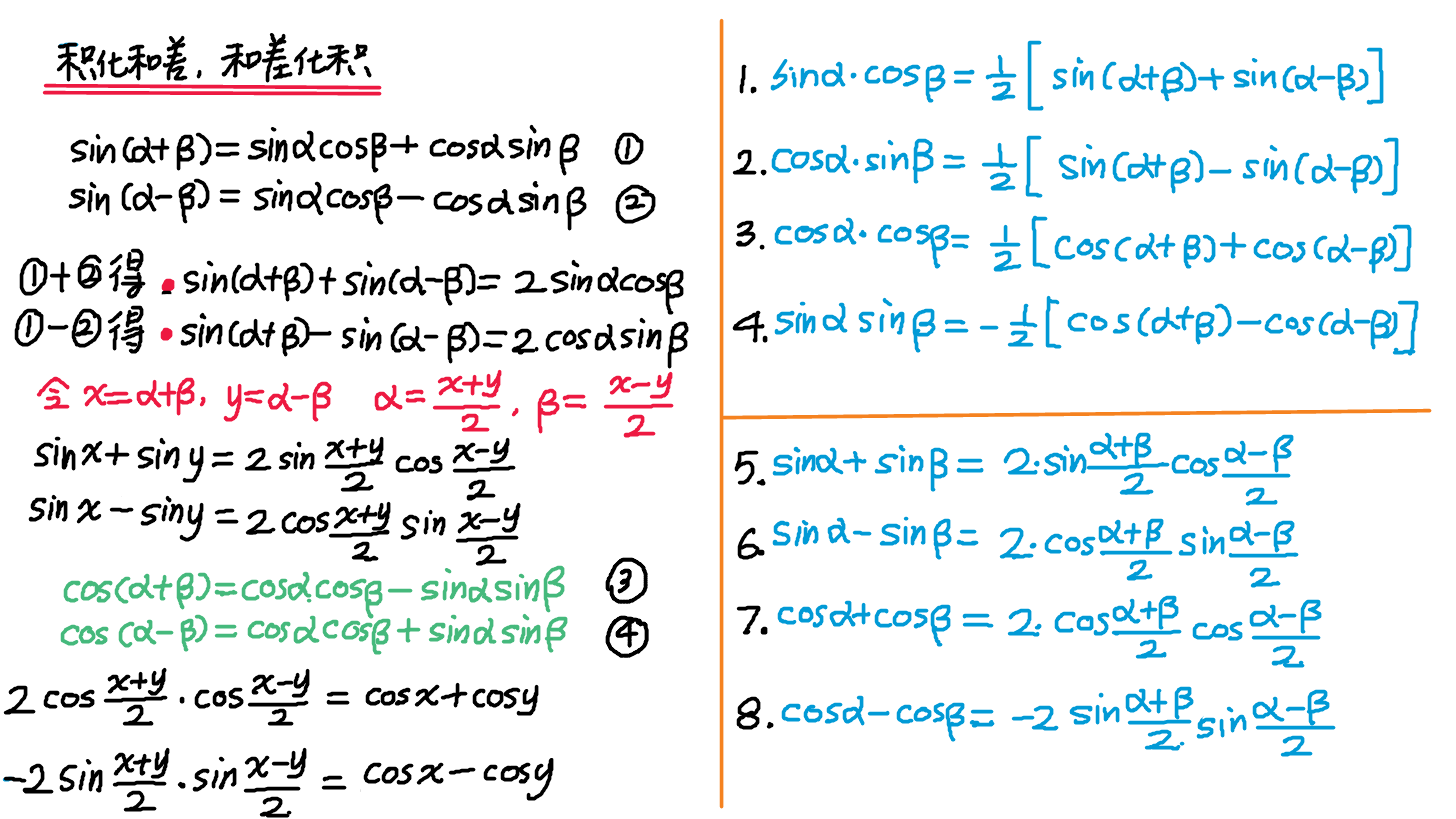 积化和差，和差化积
sin(α+β)=sinαcosβ+cosαsinβ ①
sin(α-β)=sinαcosβ-cosαsinβ ②
①+②得 · sin(α+β)+sin(α-β)=2sinαcosβ
①-②得 · sin(α+β)-sin(α-β)=2cosαsinβ
令 x=α+β, y=α-β α=\frac{x+y}{2}, β=\frac{x-y}{2}
sinx+siny=2sin\frac{x+y}{2}cos\frac{x-y}{2}
sinx-siny=2cos\frac{x+y}{2}sin\frac{x-y}{2}
cos(α+β)=cosαcosβ-sinαsinβ ③
cos(α-β)=cosαcosβ+sinαsinβ ④
2cos\frac{x+y}{2}·cos\frac{x-y}{2}=cosx+cosy
-2sin\frac{x+y}{2}·sin\frac{x-y}{2}=cosx-cosy
1. sinα·cosβ=\frac{1}{2}[sin(α+β)+sin(α-β)]
2. cosα·sinβ=\frac{1}{2}[sin(α+β)-sin(α-β)]
3. cosα·cosβ=\frac{1}{2}[cos(α+β)+cos(α-β)]
4. sinαsinβ=-\frac{1}{2}[cos(α+β)-cos(α-β)]
5. sinα+sinβ=2·sin\frac{α+β}{2}cos\frac{α-β}{2}
6. sinα-sinβ=2·cos\frac{α+β}{2}sin\frac{α-β}{2}
7. cosα+cosβ=2·cos\frac{α+β}{2}cos\frac{α-β}{2}
8. cosα-cosβ=-2sin\frac{α+β}{2}sin\frac{α-β}{2}